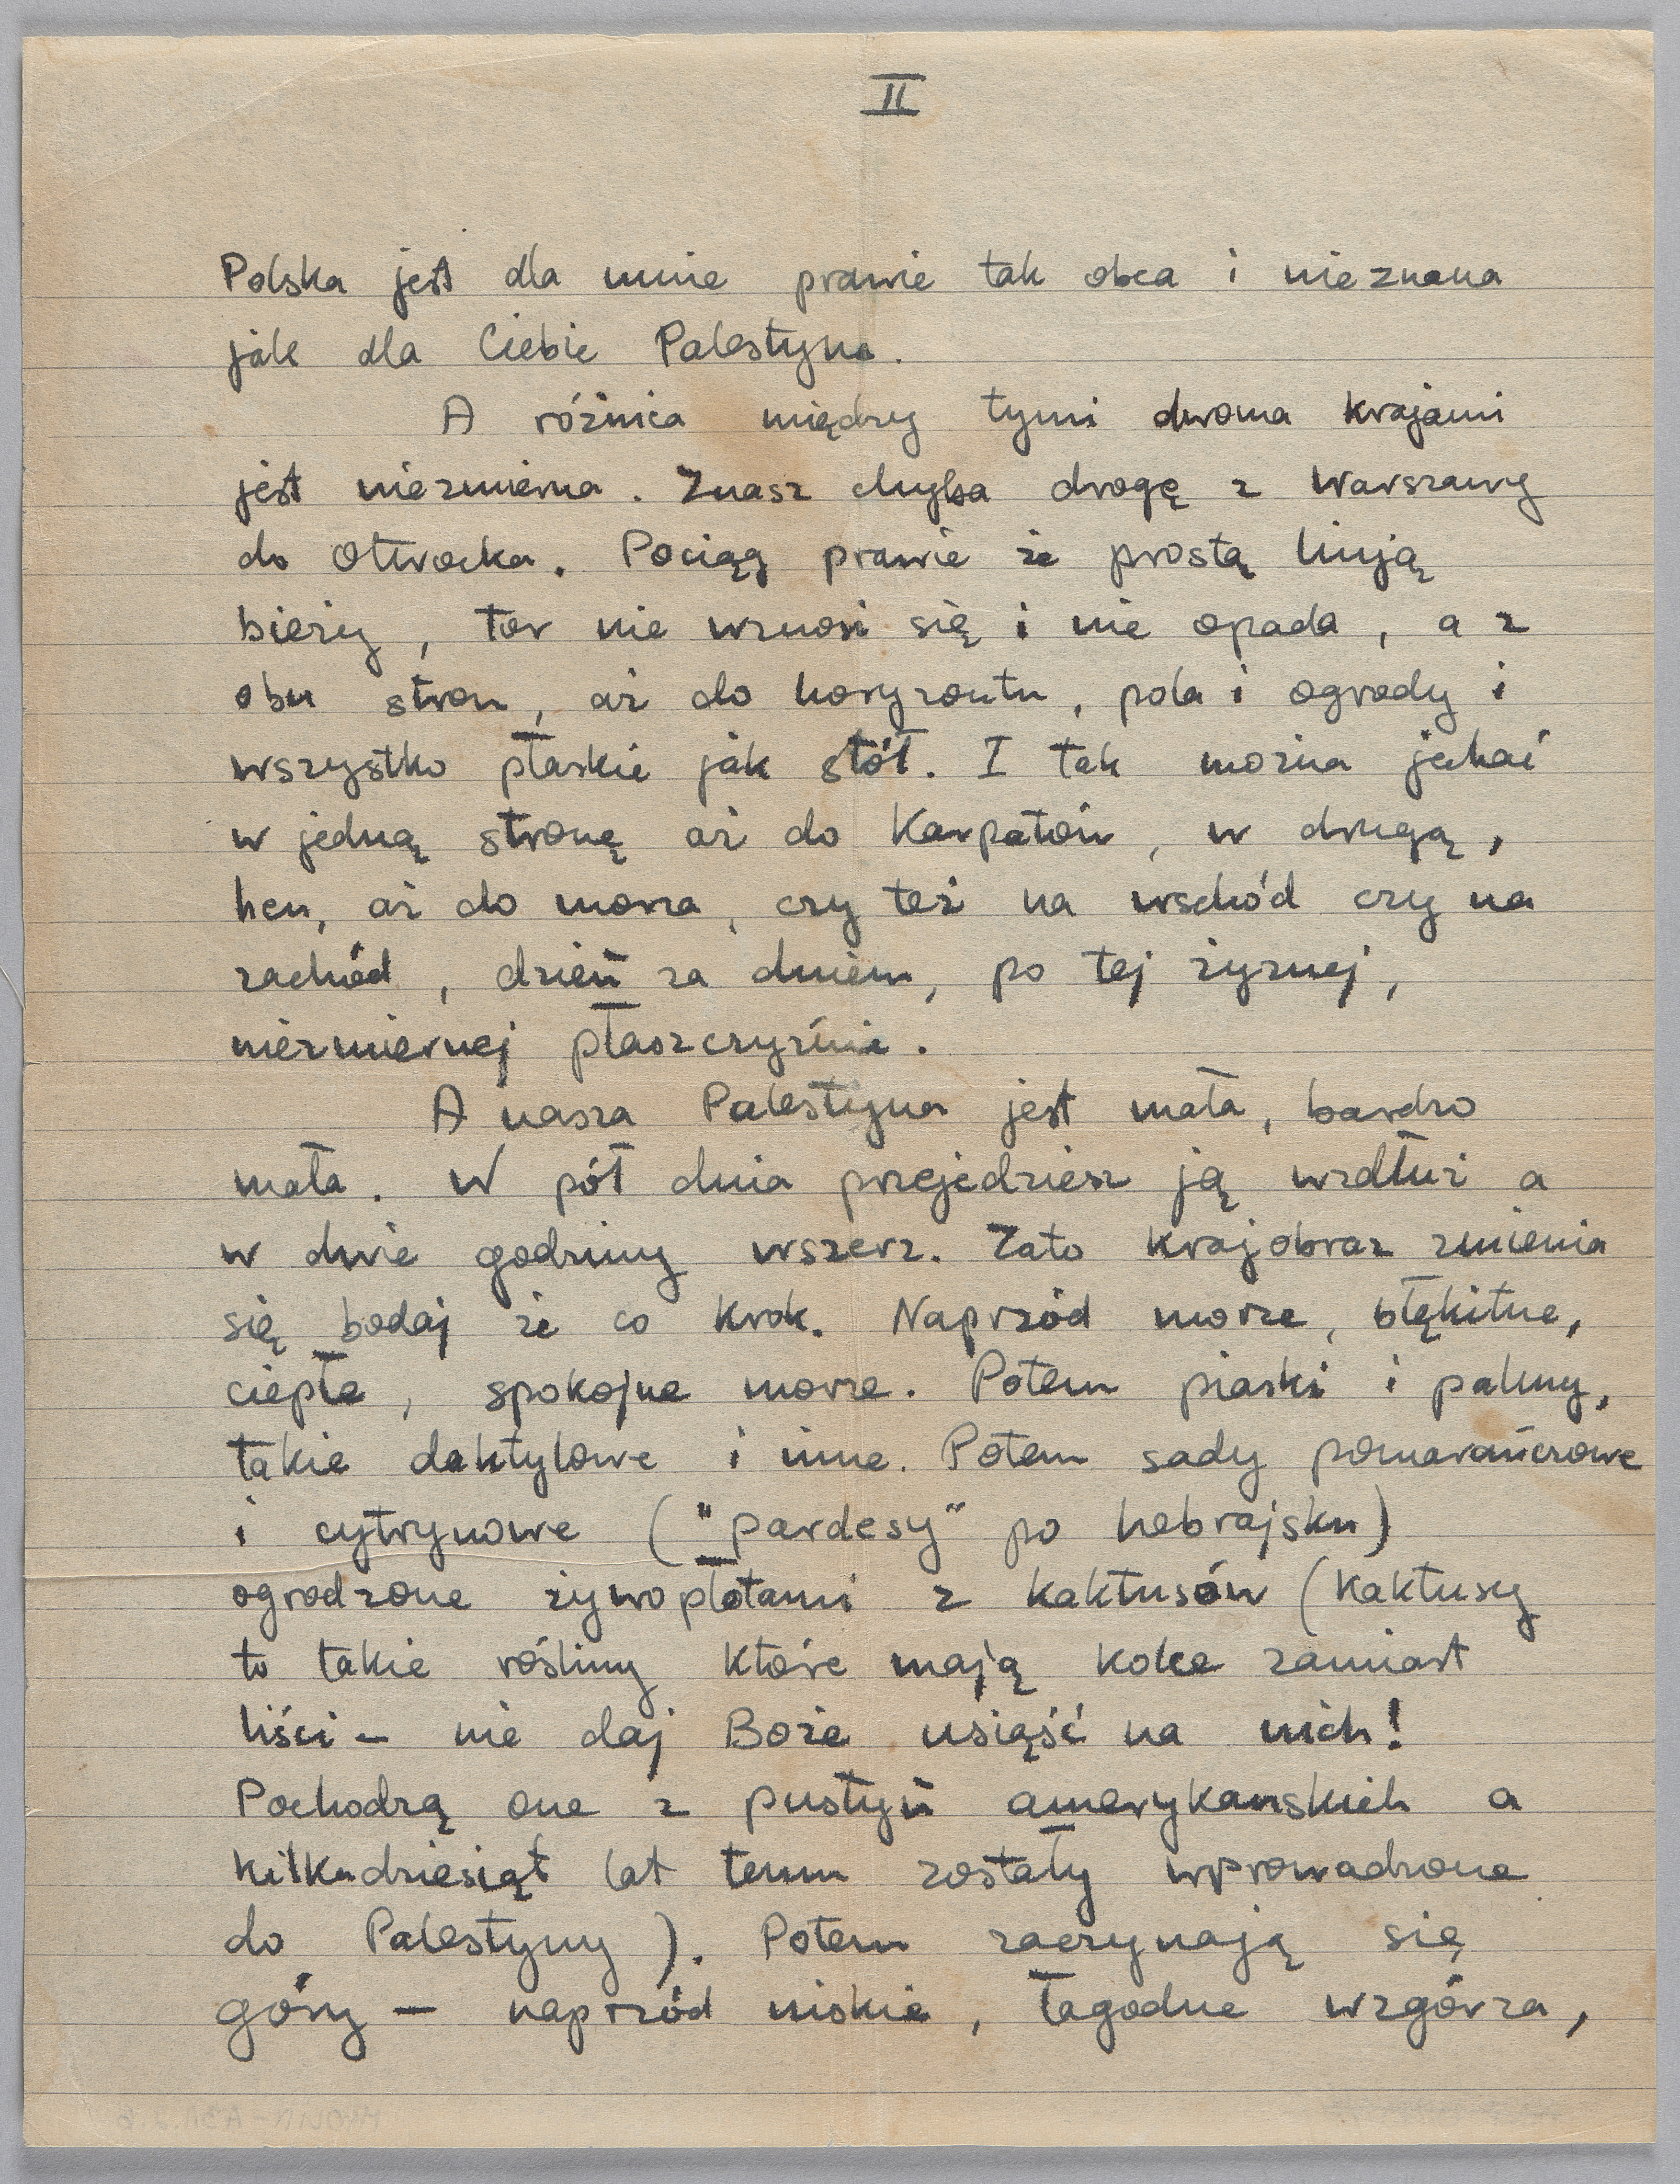 II
Polska jest dla mnie prawie tak obca i nieznana
jak dla Ciebie Palestyna.
A różnica między tymi dwoma krajami
jest niezmierna. Znasz chyba drogę z Warszawy
do Otwocka. Pociąg prawie że prostą linją
bieży, tor nie wznosi się i nie opada, a z
obu stron, aż do horyzontu, pola i ogrody i
wszystko płaskie jak stół. I tak można jechać
w jedną stronę aż do Karpatów, w drugą,
hen, aż do morza, czy też na wschód czy na
zachód, dzień za dniem, po tej żyznej,
niezmiernej płaszczyźnie.
A nasza Palestyna jest mała, bardzo
mała. W pół dnia przejedziesz ją wzdłuż a
w dwie godziny wszerz. Zato krajobraz zmienia
się bodaj że co krok. Naprzód morze, błękitne,
ciepłe, spokojne morze. Potem piaski i palmy,
takie daktylowe i inne. Potem sady pomarańczowe
i cytrynowe ("pardesy" po hebrajsku)
ogrodzone żywopłotami z kaktusów (kaktusy
to takie rośliny które mają kolce zamiast
liści - nie daj Boże usiąść na nich!
Pochodzą one z pustyń amerykanskich a
kilkudziesiąt lat temu zostały wprowadzone
do Palestyny). Potem zaczynają się
góry - naprzód niskie, łagodne wzgórza,